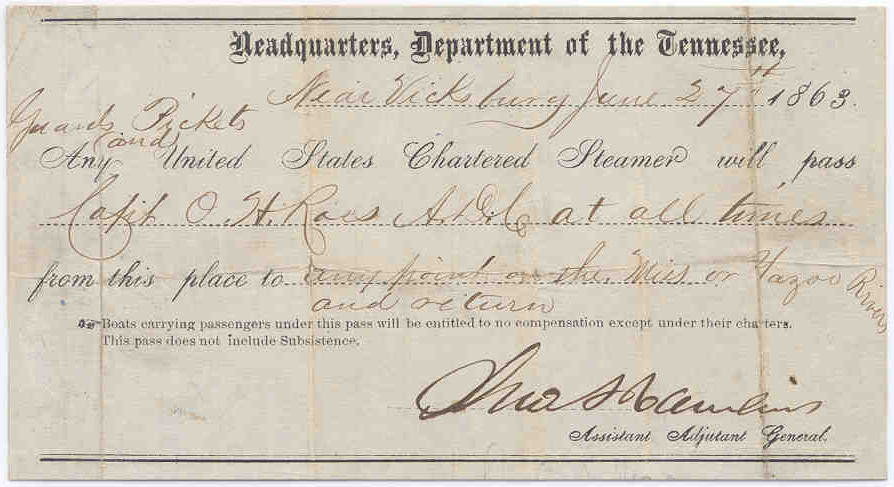 Headquarters, Department of the Tennessee,
Near Vicksburg June 27th 1863.
Guards Pickets
and
Any United States Chartered Steamer will pass
Capt O. H. Ross A.D.C at at all times
from this place to any point on the Miss or Yazoo Rivers
and return
Boats carrying passengers under this pass will be entitled to no compensation except under their charters.
This pass does not Include Subsistence.
Jno A Rawlins
Assistant Adjutant General.